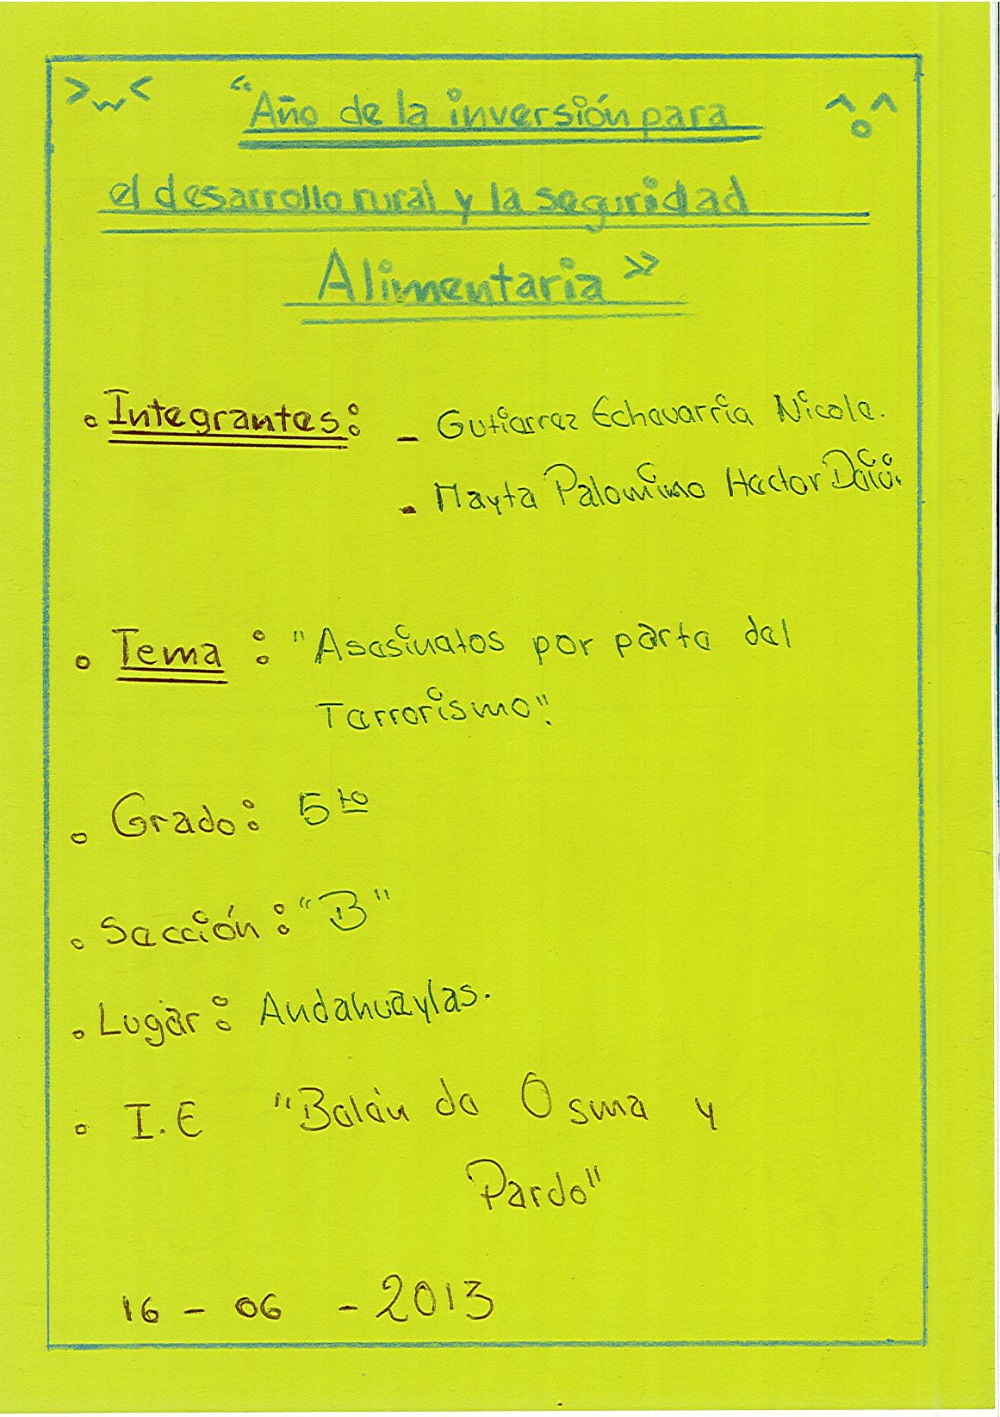 >w< "Año de la inversión para ^o^
el desarrollo rural y la seguridad
Alimentaria"
Integrantes: - Gutierrez Echavarria Nicole.
- Mayta Palomino Hector
Tema : "Asesinatos por parte del
Terrorismo".
Grado: 5to
Sección: "B"
Lugar: Andahuaylas.
I.E "Belén de Osma y
Pardo"
16 - 06 - 2013